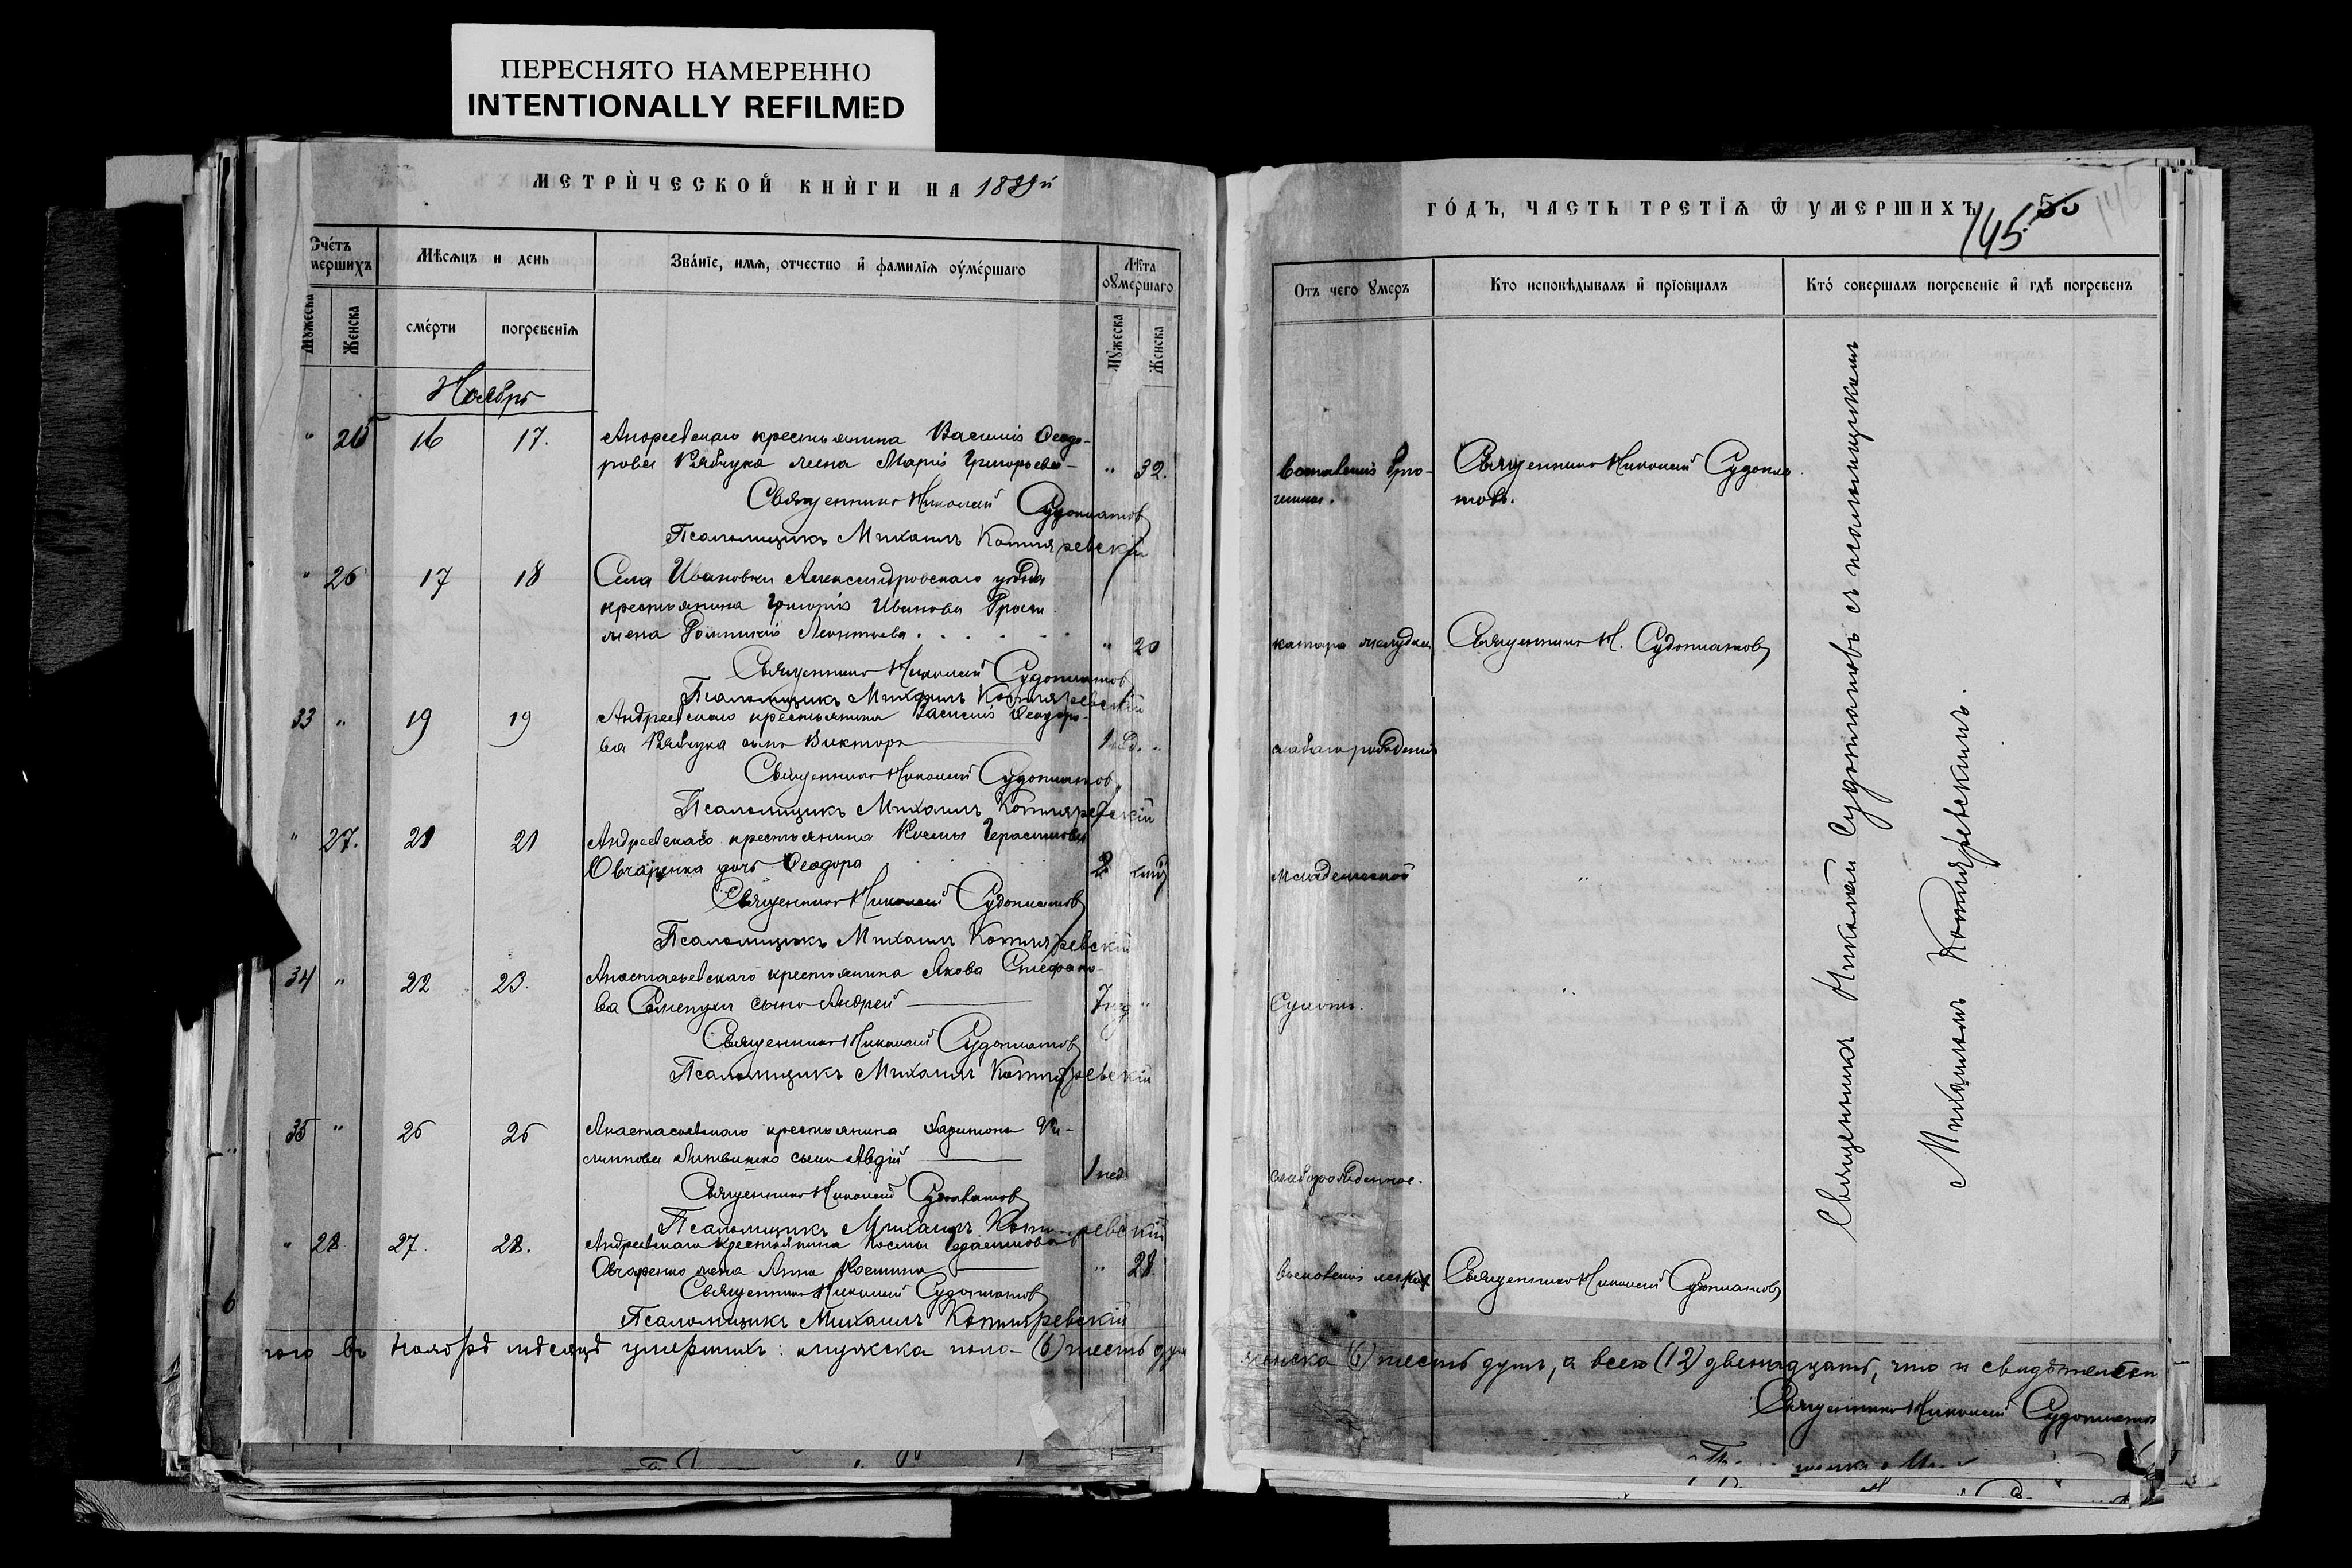 ПЕРЕСНЯТО НАМЕРЕННО
INTENTIONALLY REFILMED
МЕТРИЧЕСКОЙ КНИГИ НА 1889й
Счетъ мершихъ
Мѣсяцъ и день
Званіе, имя, отчество и фамилія оумершаго
Лѣта оумершаго
Мужеска
Женска
смерти
погребенія
Мужеска
Женска
Ноябрь
" 25 16 17. Андреевскаго крестьянина Василія Ѳеодо-
рова Рябчука жена Марія Григорьева " 32.
Священникъ Николай Судоплатовъ
Псаломщикъ Михаилъ Котляревскій
" 26 17 18 Села Ивановки Александровскаго уѣзда
крестьянина Григорія Иванова
жена Леонтьева " 20
Священникъ Николай Судоплатовъ
Псаломщикъ Михаилъ Котляревскій
33 " 19 19 Андреевскаго крестьянина Василія Ѳеодоро-
ва Рябчука сынъ Викторъ 1 нед. "
Священникъ Николай Судоплатовъ
Псаломщикъ Михаилъ Котляревскій
" 27. 21 21 Андреевскаго крестьянина Космы Герасимова
Овчаренка дочь Ѳеодора 2
Священникъ Николай Судоплатовъ
Псаломщикъ Михаилъ Котляревскій
34 " 22 23. Анастасьевскаго крестьянина Якова Стефано-
ва сынъ Андрей "
Священникъ Николай Судоплатовъ
Псаломщикъ Михаилъ Котляревскій
35 " 25 25 Анастасьевскаго крестьянина Харитона Фи-
липпова Литвиненко сынъ Авдій 1 нед.
Священникъ Николай Судоплатовъ
Псаломщикъ Михаилъ Котляревскій
" 28 27. 28. Андреевскаго крестьянина Космы Герасимова
Овчаренко жена Анна Космина " 28.
Священникъ Николай Судоплатовъ
Псаломщикъ Михаилъ Котляревскій
того въ ноябрѣ мѣсяцѣ умершихъ: мужска пола (6) шесть душ
ГОДЪ, ЧАСТЬ ТРЕТІЯ Ѿ УМЕРШИХЪ
145.
Отъ чего умеръ
Кто исповѣдывалъ и пріобщалъ
Кто совершалъ погребеніе и гдѣ погребенъ
Священникъ Николай Судопла-
товъ.
катара желудка Священникъ Н. Судоплатовъ
слабаго рожденія
младенческой "
Сухоты. "
слаборожденное.
воспаленія легкихъ Священникъ Николай Судоплатовъ
Священникъ Николай Судоплатовъ съ псаломщикомъ
Михаиломъ Котляревскимъ.
женска (6) шесть душъ, а всего (12) двенадцать, что и свидѣтельств
Священникъ Николай Судоплатовъ